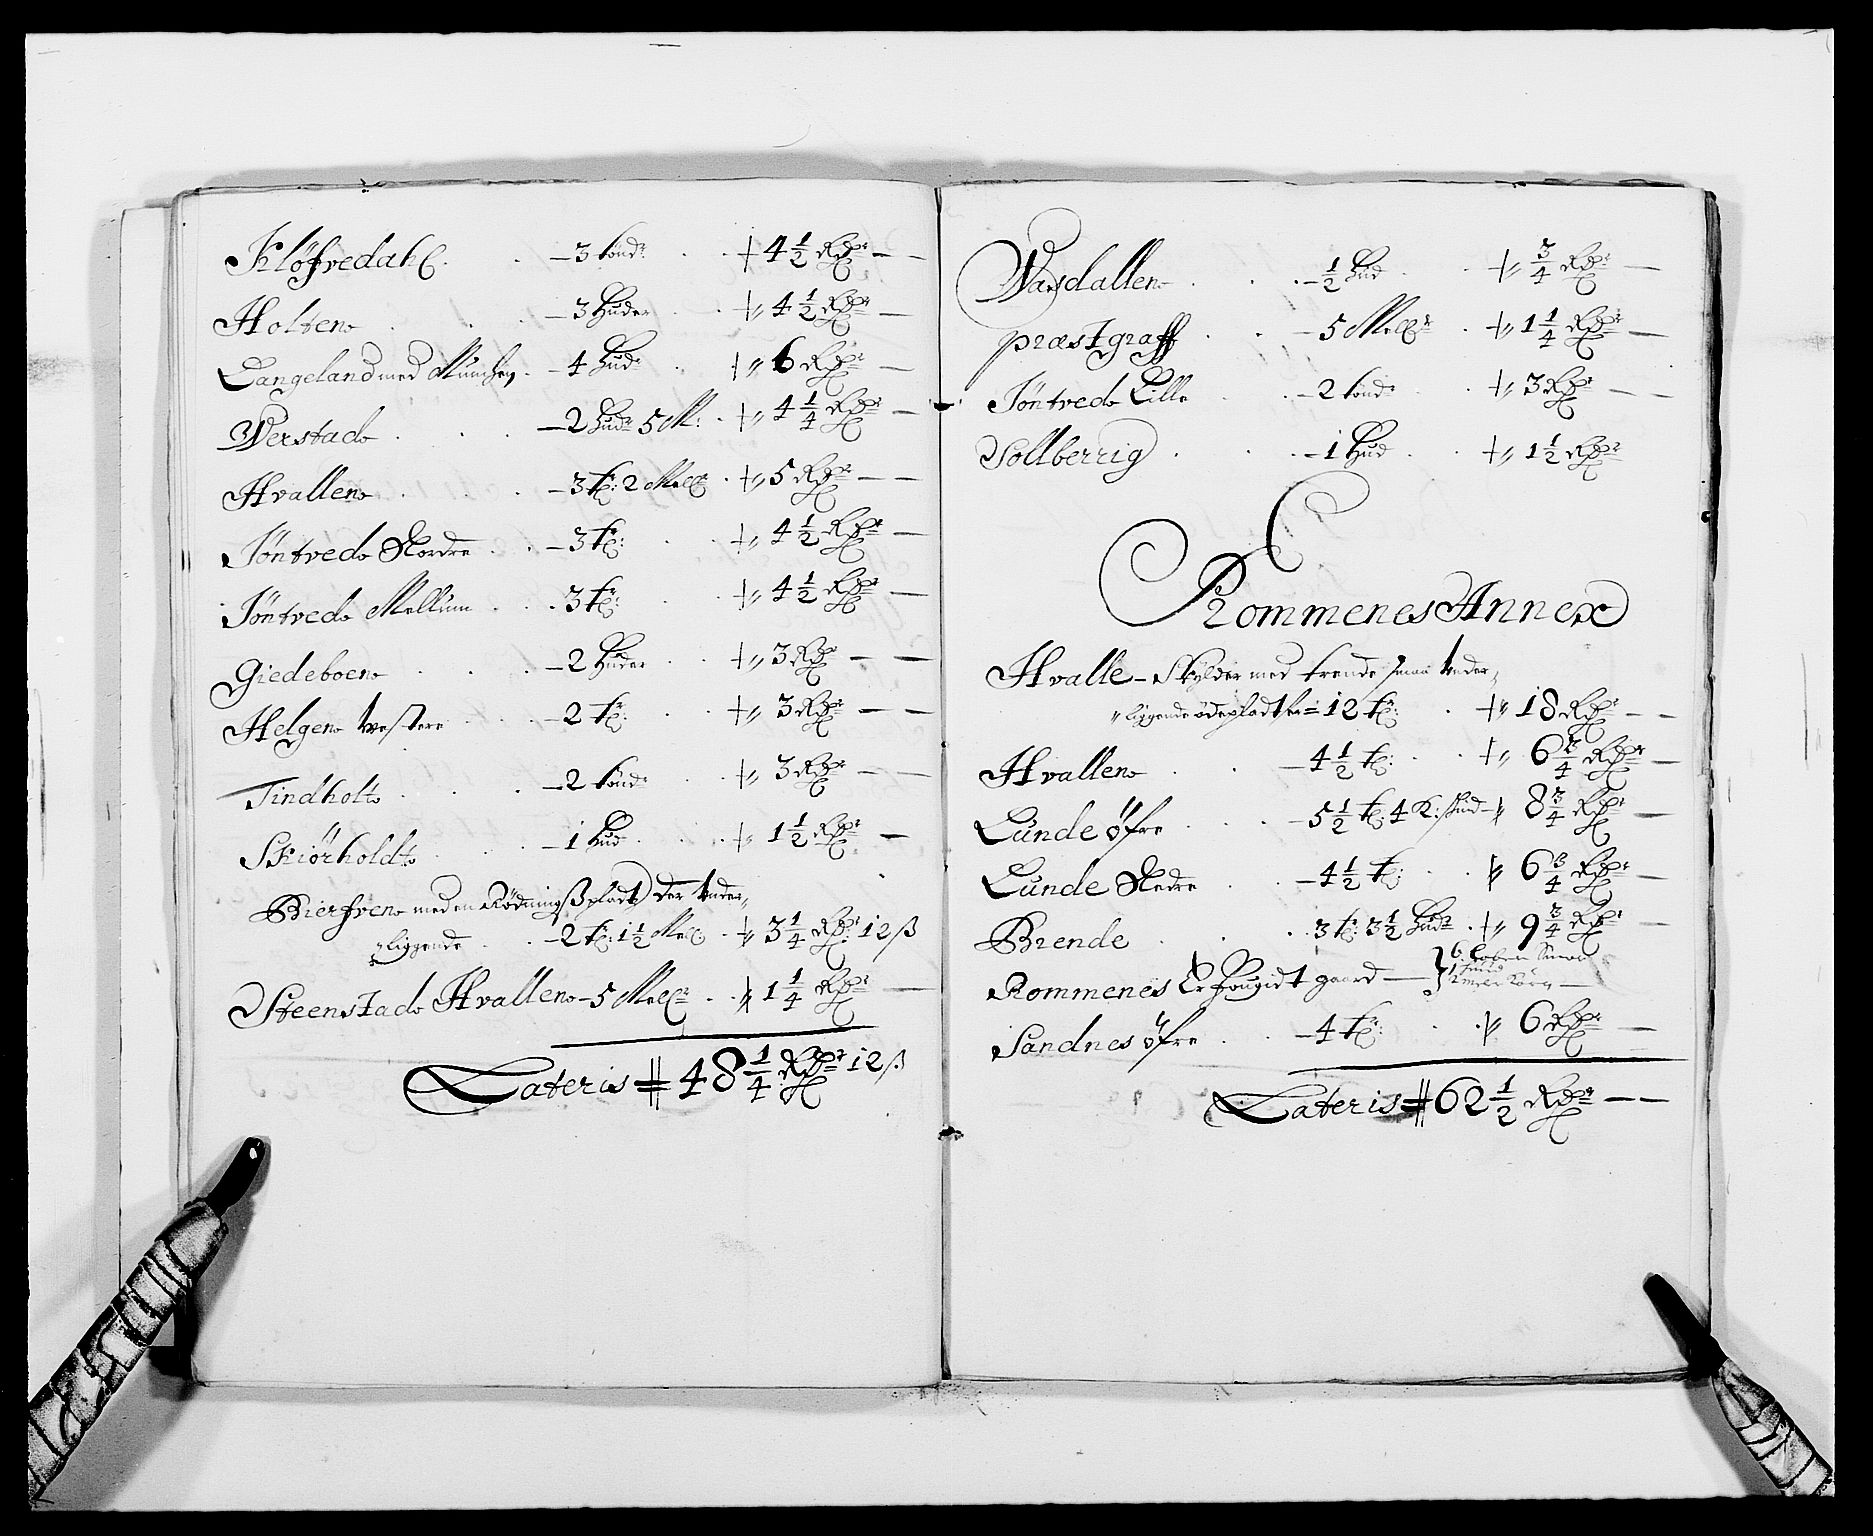 Klöfvedahl - 3 tønder 4 1/2 Rdr
Holten - 3 Huder 4 1/2 Rdr
Langeland med Munchen - 4 Huder 6 Rdr
Verstad - 2 Huder 5 M: 4 1/4 Rdr
Hvallen - 3 tr: 2 Mel 5 Rdr
Jöntved Nordre - 3 tr: 4 1/2 Rdr
Jöntved Mellum - 3 tr: 4 1/2 Rdr
Giedeboen - 2 Huder 3 Rdr
Helgen Vestere - 2 tr: 3 Rdr
Tindholt - 2 tønder 3 Rdr
Skiörholdt - 1 Hud 1 1/2 Rdr
Bierfven med en Rödningsplads der Under,
liggende - 2 tr: 1 1/2 Mel 3 1/4 Rdr: 12 ß
Steenstad Hvallen - 5 Meler 1 1/4 Rdr
Lateris # 48 1/4 Rdr 12 ß
Vasdallen - 1/2 Hud 3/4 Rdr
præstgraff - 5 Meler 1 1/4 Rdr
Jöntved Lille - 2 tønder 3 Rdr
Sollberrig - 1 Hud 1 1/2 Rdr
Rommenes Annex
Hvalle - Skylder med trende smaa Under,
liggende ödepladser = 12 tr: 18 Rdr
Hvallen - 4 1/2 tr: 6 3/4 Rdr
Lunde öfre - 5 1/2 tr: 4 K: skind 8 3/4 Rdr
Lunde Nedre - 4 1/2 tr: 6 3/4 Rdr
Brende 3 tr: 3 1/2 Huder 9 3/4 Rdr
Rommenes Er fougidt gaard
Sandnes öfre - 4 tr: 6 Rdr
Lateris # 62 1/2 Rdr